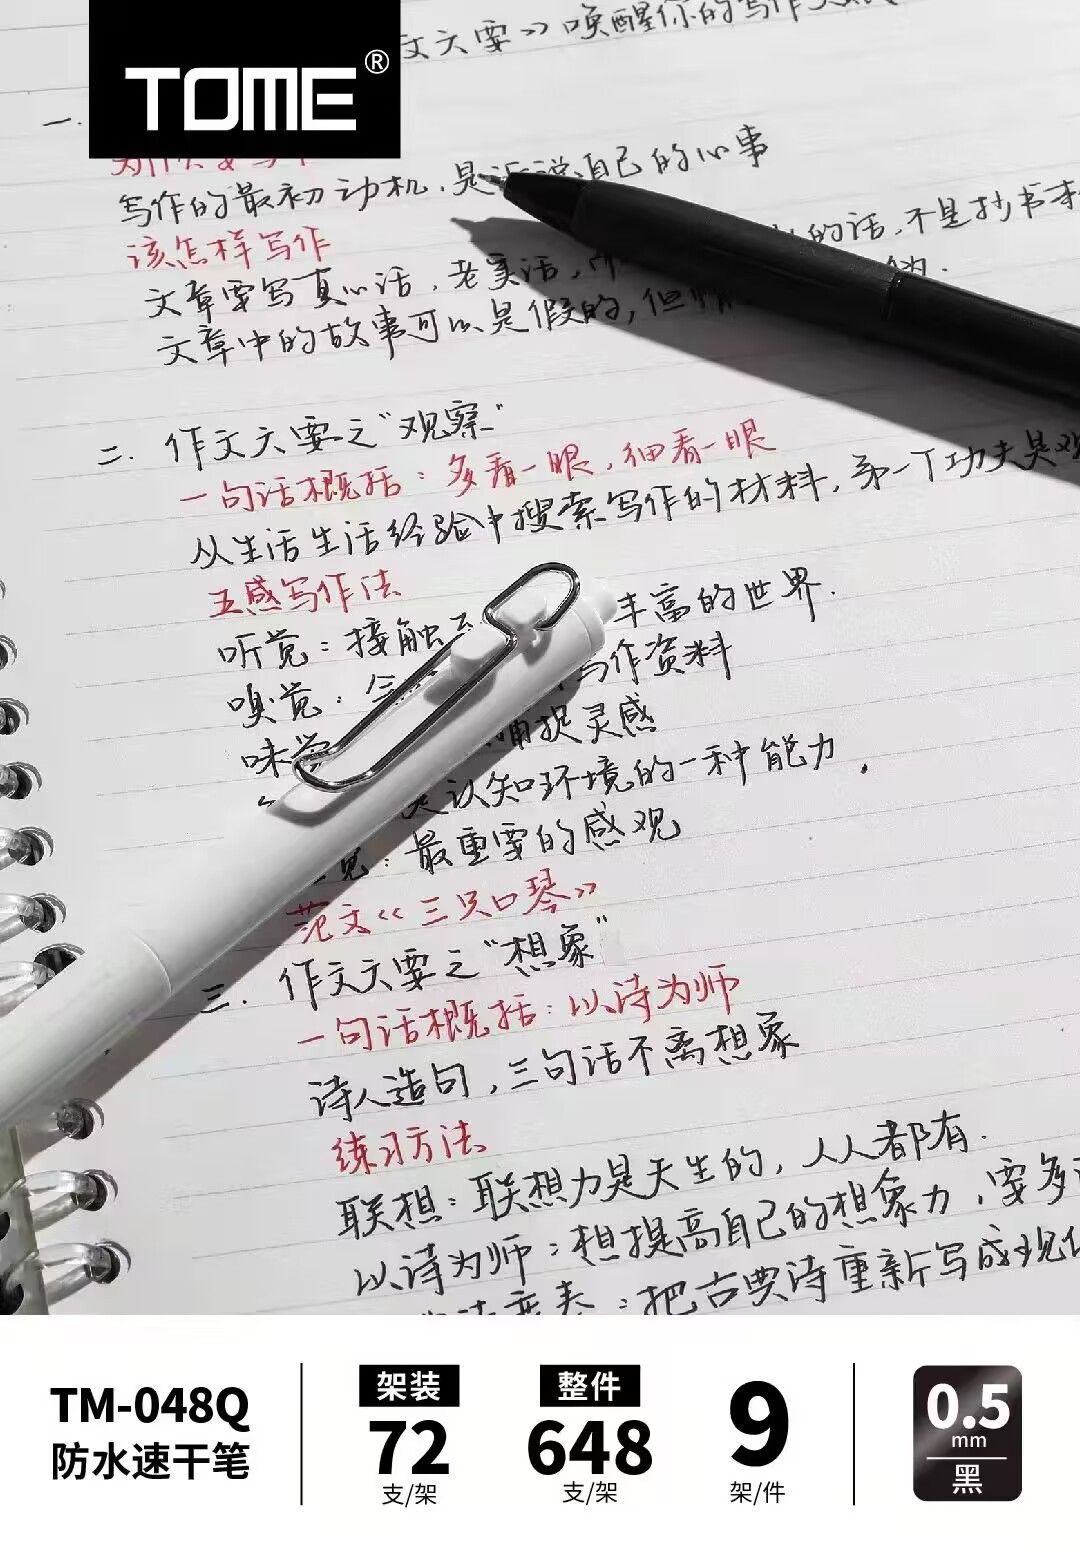 TOME®
文六要》唤醒你的写作
一.
写作的最初动机，是诉说自己的心事
该怎样写作
的话.不是抄书本
文章要写真心话，老实话，所
文章中的故事可以是假的，但情
二. 作文六要之"观察"
一句话概括：多看一眼，细看一眼
从生活生活经验中搜索写作的材料，第一个功夫是观
五感写作法
听觉：接触 丰富的世界.
嗅觉： 写作资料
味觉 捕捉灵感
是认知环境的一种能力.
觉：最重要的感观
范文《三只口琴》
三. 作文六要之"想象"
一句话概括：以诗为师
诗人造句，三句话不离想象
练习方法
联想：联想力是天生的，人人都有.
以诗为师：想提高自己的想象力，要多
：把古典诗重新写成现代
TM-048Q
防水速干笔
架装
72
支/架
整件
648
支/架
9
架/件
0.5
mm
黑